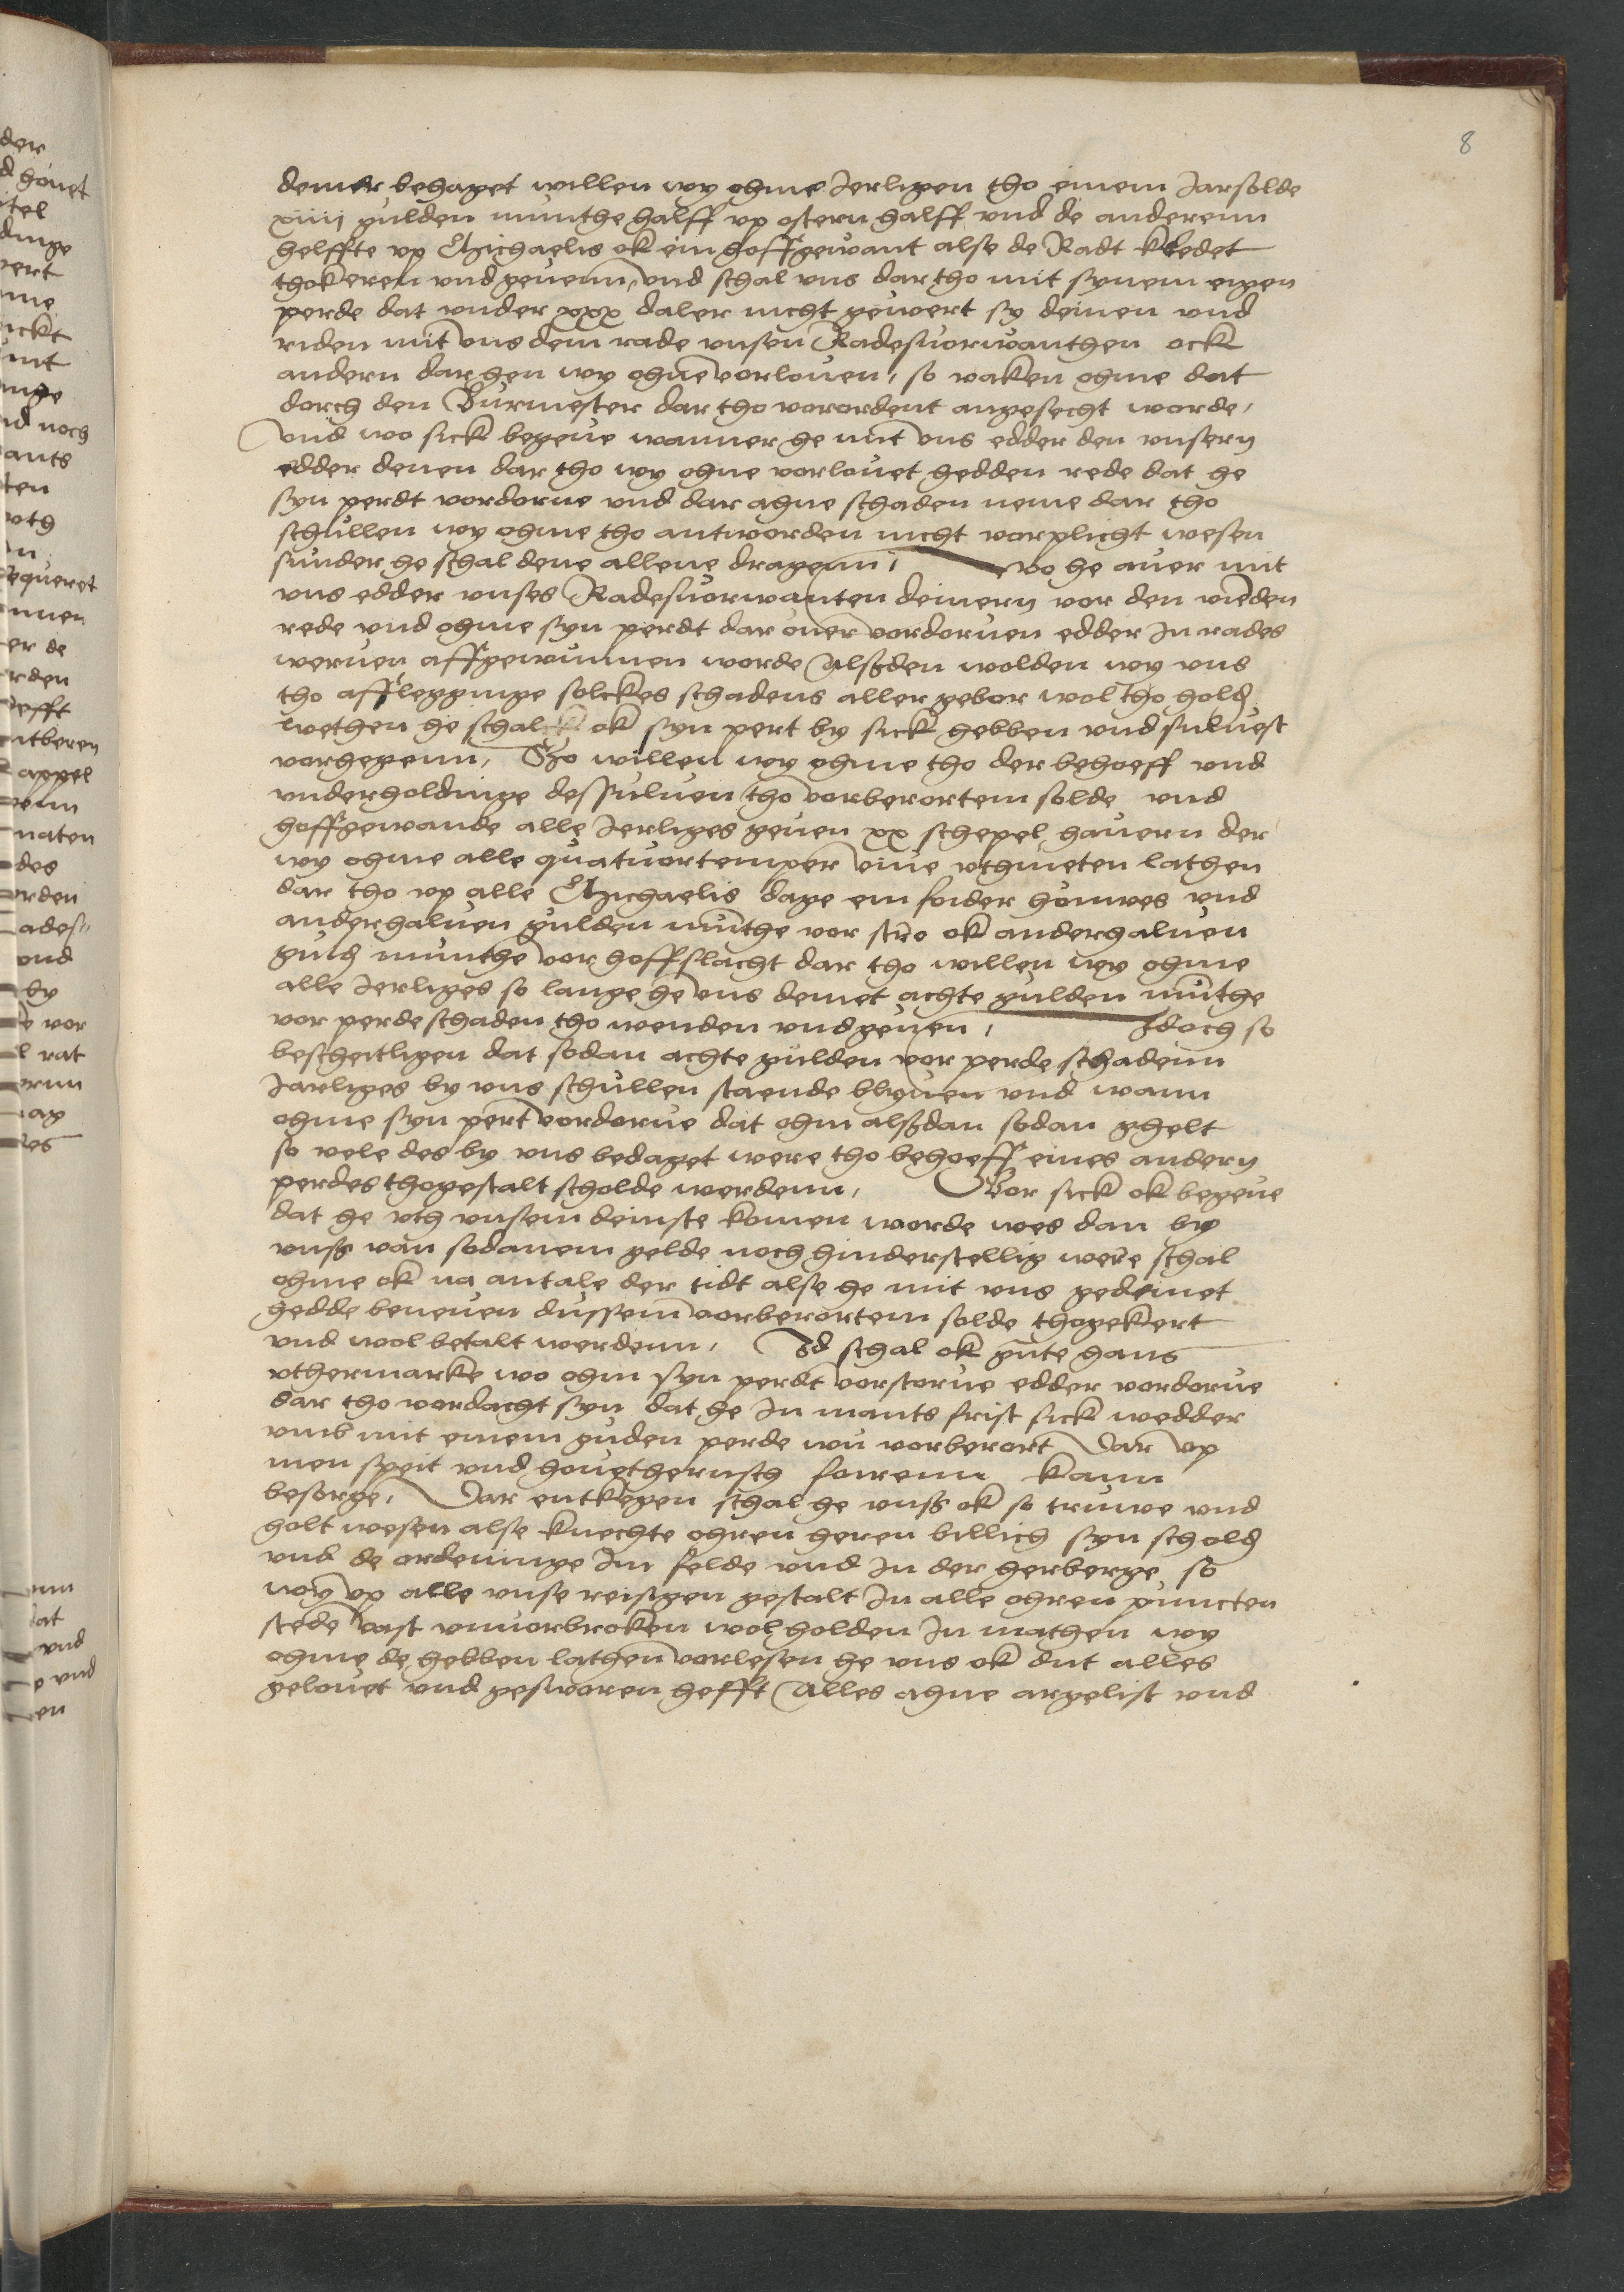 8
deinst behaget willen wy ohme Jerligen tho einem Jarsolde
xiiij gulden munthe halff vp ostern halff vnd de anderenn
helffte vp Michaelis ok ein hoffgewant alse de Radt kledet
thokeren vnd geuenn, vnd schal vns dar tho mit synem eigen
perde dat vnder xxx daler nicht gewert sy deinen vnd
riden mit vns dem rade vnsen Radesuorwanthen ock
andern dar hen wy ohne vorlouen, so vaken ohme dat
dorch den Burmester dar tho vorordent angesecht worde,
Vnd wo sick begeue wanner he mit vns edder den vnsern
edder denen dar tho wy ohne vorlouet hedden rede dat he
syn perdt vordorue vnd dar ahne schaden neme dar tho
schullen wy ohme tho antworden nicht vorplicht wesen
sunder he schal dene allene dragenn, wo he auer mit
vns edder vnses Radesuorwanten deinern vor den vienden
rede vnd ohme syn perdt dar ouer vordoruen edder In rades
weruen affgewunnen worde Alsden wolden wy vns
tho afflegginge solckes schadens aller gebor wol tho hold
wethen he schal ok syn pert by sick hebben vnd suluest
vorhegenn, So willen wy ohme tho der behoeff vnd
vnderholdinge dessuluen tho vorberortem solde vnd
hoffgewande alle Jerliges geuen xx schepel hauern der
wy ohme alle quatuortemper viue vthmeten lathen
dar tho vp alle Michaelis dage ein foider houwes vnd
anderhaluen gulden munthe vor stro ok anderhaluen
guld munthe vor hoffslacht dar tho willen wy ohme
alle Jerliges so lange he vns deinet achte gulden munthe
vor perde schaden tho wenden vnd geuen, Jdoch so
bescheitligen dat sodan achte gulden vor perde schadenn
Jarliges by vns schullen staende blyuen vnd wann
ohme syn pert vordorue dat ohm alßdan sodan ghelt
so vele des by vns bedaget were tho behoeff eines andern
perdes thogestalt scholde werdenn, Vor sick ok begeue
dat he vth vnsem deinste komen worde wes dan by
vnß van sodanem gelde noch hinderstellig were schal
ohme ok na antale der tidt alse he mit vns gedeinet
hedde beneuen dussem vorberortem solde thogekert
vnd wol betalt werdenn, Jd schal ok gute hans
vthermarke wo ohm syn perdt vorstorue edder vordorue
dar tho vordacht syn dat he In mants frist sick wedder
vmb mit einem guden perde wu vorberort Dar vp
men speit vnd houetharnsch foirenn kann
besorge, Dar entkegen schal he vnß ok so truwe vnd
holt wesen alse knechte ohren heren billich syn schold
vnd de ordeninge Im felde vnd In der herberge so
wy vp alle vnse reisigen gestalt In alle ohren puncten
stede vast vnuorbroken wol holden In mathen wy
ohme de hebben lathen vorlesen he vns ok dut alles
gelouet vnd gesworen hefft Alles ahne argelist vnd